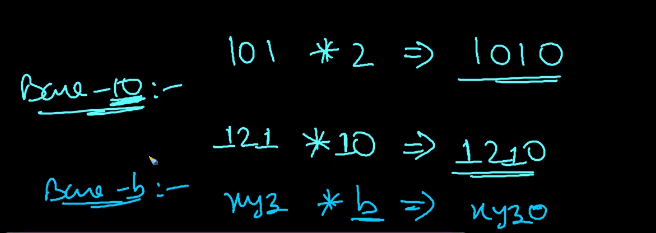 101 * 2 => 1010
Base-10:-
121 * 10 => 1210
Base-b:- xyz * b => xyz0